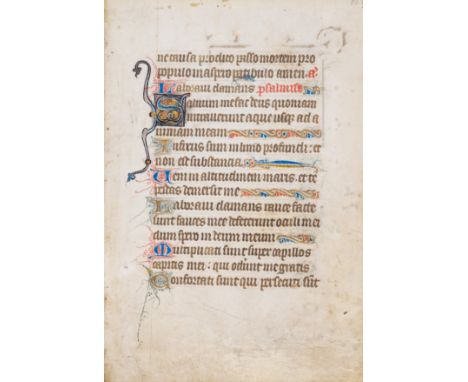 ne causa prodito passo mortem pro
populo in aspro patibulo amen. a.
Laboraui clamans psalmus
Saluum me fac deus quoniam
intrauerunt aque usq; ad a
nimam meam
Infixus sum in limo profundi: et
non est substancia
Ueni in altitudinem maris. et te
pestas demersit me
Laboraui clamans rauce facte
sunt fauces mee defecerunt oculi mei
dum spero in deum meum
Multiplicati sunt super capillos
capitis mei: qui odunt me gratis
Confortati sunt qui persecuti sūt